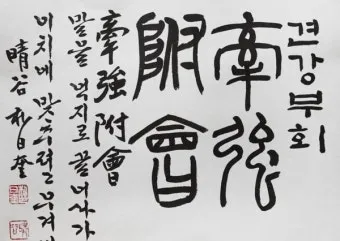 견강부회
牽強
附會
牽強附會
말을 억지로 끌어다가
이치에 맞추려고 우겨
晴谷 日奎